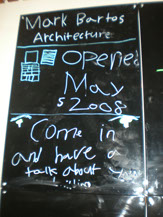 Mark Bartos
Architecture
opened
May
2008
Come in
and have a
talk about